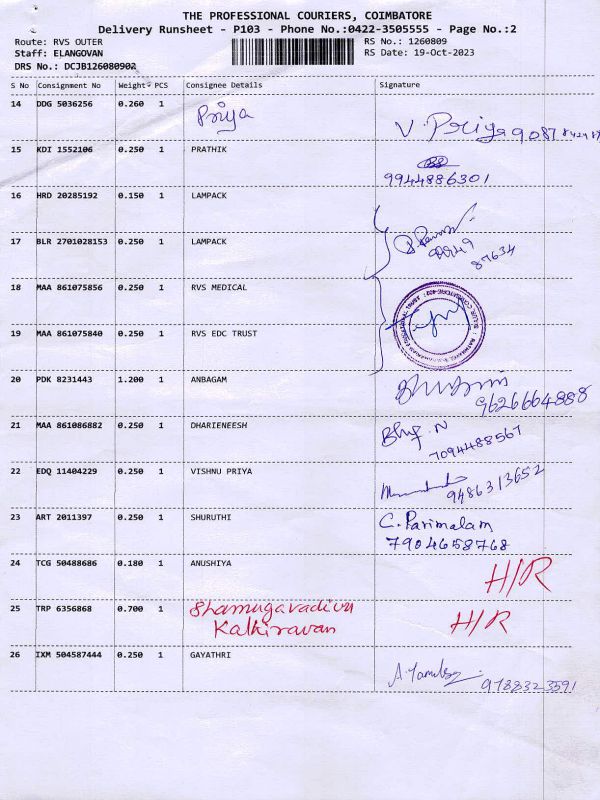 THE PROFESSIONAL COURIERS, COIMBATORE
Delivery Runsheet - P103 - Phone No.:0422-3505555 - Page No.:2
Route: RVS OUTER RS No.: 1260809
Staff: ELANGOVAN RS Date: 19-Oct-2023
DRS No.: DCJB126080902
S No Consignment No Weight PCS Consignee Details Signature
14 DDG 5036256 0.260 1 Priya V. Priya
15 KDI 1552106 0.250 1 PRATHIK 9944886301
16 HRD 20285192 0.150 1 LAMPACK
17 BLR 2701028153 0.250 1 LAMPACK
87634
18 MAA 861075856 0.250 1 RVS MEDICAL
19 MAA 861075840 0.250 1 RVS EDC TRUST
20 PDK 8231443 1.200 1 ANBAGAM 9626664888
21 MAA 861086882 0.250 1 DHARIENEESH
7094488567
22 EDQ 11404229 0.250 1 VISHNU PRIYA 9486313652
23 ART 2011397 0.250 1 SHURUTHI C. Parimalam
7904658768
24 TCG 50488686 0.180 1 ANUSHIYA H/R
25 TRP 6356868 0.700 1 Shamugavadivu H/R
Kathiravan
26 IXM 504587444 0.250 1 GAYATHRI 9788323591